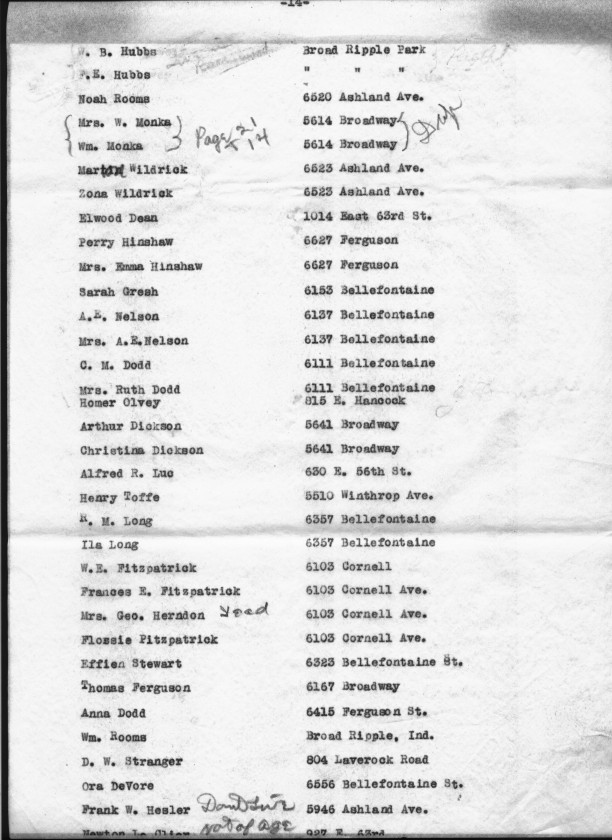 -14-
W. B. Hubbs Broad Ripple Park
F.E. Hubbs " " "
Noah Rooms 6520 Ashland Ave.
Mrs. W. Monka 5614 Broadway
Wm. Monka Page 21 5614 Broadway Dup
Martin Wildrick 6523 Ashland Ave.
Zona Wildrick 6523 Ashland Ave.
Elwood Dean 1014 East 63rd St.
Perry Hinshaw 6627 Ferguson
Mrs. Emma Hinshaw 6627 Ferguson
Sarah Gresh 6153 Bellefontaine
A.E. Nelson 6137 Bellefontaine
Mrs. A.E.Nelson 6137 Bellefontaine
C. M. Dodd 6111 Bellefontaine
Mrs. Ruth Dodd 6111 Bellefontaine
Homer Olvey 815 E. Hancock
Arthur Dickson 5641 Broadway
Christina Dickson 5641 Broadway
Alfred R. Luc 630 E. 56th St.
Henry Toffe 5510 Winthrop Ave.
R. M. Long 6357 Bellefontaine
Ila Long 6357 Bellefontaine
W.E. Fitzpatrick 6103 Cornell
Frances E. Fitzpatrick 6103 Cornell Ave.
Mrs. Geo. Herndon 6103 Cornell Ave.
Flossie Pitzpatrick 6103 Cornell Ave.
Effien Stewart 6323 Bellefontaine St.
Thomas Ferguson 6167 Broadway
Anna Dodd 6415 Ferguson St.
Wm. Rooms Broad Ripple, Ind.
D. W. Stranger 804 Laverock Road
Ora DeVore 6556 Bellefontaine St.
Frank W. Hesler Dont Live 5946 Ashland Ave.
Newton Not of age 927 E. 63rd